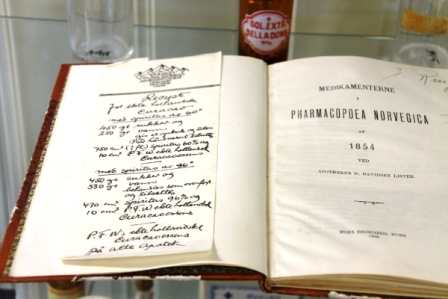 SOL. EXTR.
BELLADONN
Recept
for ekte hollandsk
Curacao
med spiritus av 60°
450 gr sukker og
250 gr vann
750 cm³ spiritus 60% og
10 cm³ P.F.W. ekte hollandske
Curacaoessens
med spiritus av 96°
450 gr sukker og
530 gr vann
og tilsettes
470 cm³ spiritus 96% og
10 cm³ P.F.W. ekte hollandske
Curacaoessens
P.F.W.s ekte hollandske
Curacaoessens
på alle apotek
MEDIKAMENTERNE
I
PHARMACOPOEA NORVEGICA
AF
1854
VED
APOTHEKER